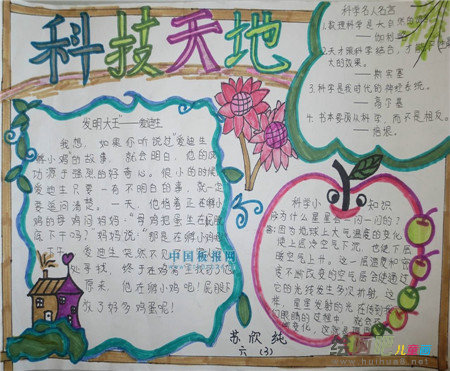 科技天地
发明大王”——爱迪生
我想，如果你听说过“爱迪生
孵小鸡的故事，就会明白，他的成
功源于强烈的好奇心。很小的时候
爱迪生只要一有不明白的事，就一定
要追问清楚。一天，他指着正在孵小
鸡的母鸡问妈妈：“母鸡把蛋生在屁股
底下干吗？妈妈说：“那是在孵小鸡
爱迪生突然不见
处寻找，终于在鸡窝
原来，他在孵小鸡呢！屁股下
放了好多鸡蛋呢！
科学名人名言
1.数理科学是大自然的
——伽利略
2.天才照科学结合，才能
大的效果。
——斯宾塞
3.科学是我时代的神经系统。
——高尔基
4.书本要质从科学，而不是相反。
——培根
科学小知识
为什么星星会一闪一闪的？
因为地球上大气温度的变化，
使上层冷空气下沉，也使下层
暖空气上升。这一层温度和密
度不断改变的空气层会使通过
它的光线发生多次折射，这
样，星星发射的光在传到我
们眼睛的过程中
苏欣纯
六（3）
中国板报网
儿童画
www.huihua8.net